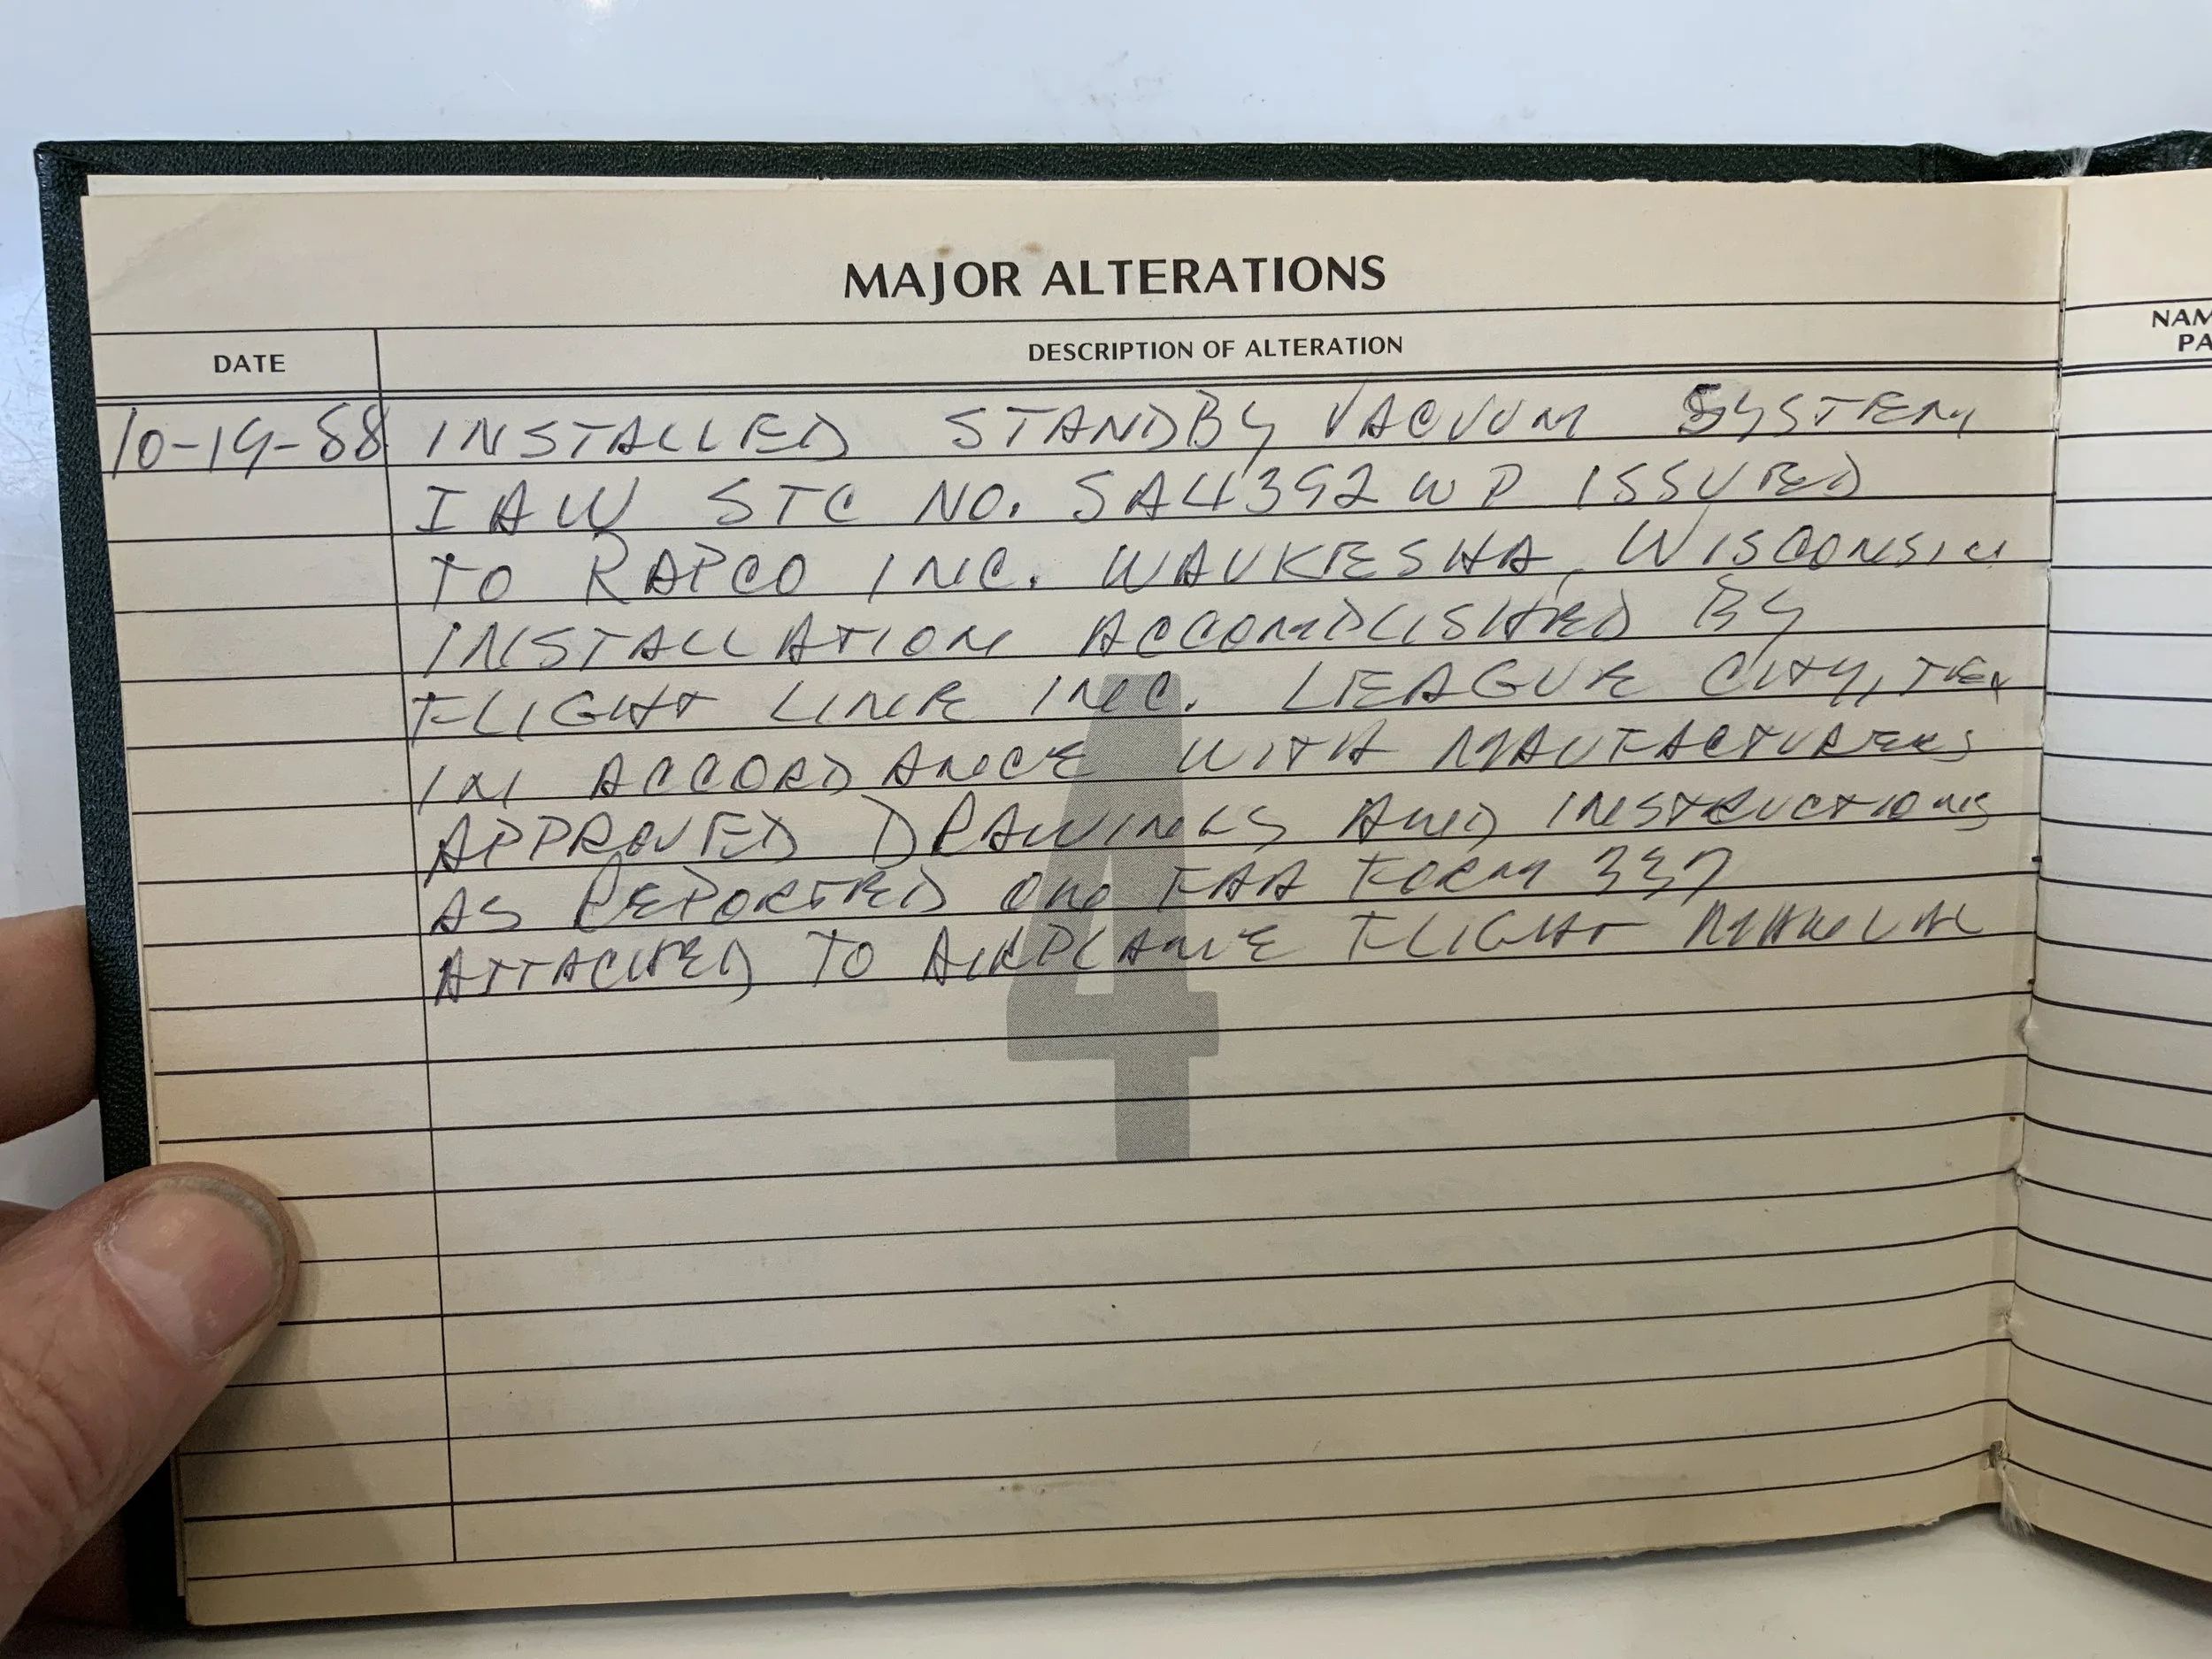 MAJOR ALTERATIONS
DATE DESCRIPTION OF ALTERATION
10-19-88 INSTALLED STANDBY VACUUM SYSTEM
IAW STC NO. SA4392WP ISSUED
TO RAPCO INC. WAUKESHA, WISCONSIN
INSTALLATION ACCOMPLISHED BY
FLIGHT LINE INC. LEAGUE CITY, TEX
IN ACCORDANCE WITH MAUFACTURERS
APPROVED DRAWINGS AND INSTRUCTIONS
AS REPORTED ON FAA FORM 337
ATTACHED TO AIRPLANE FLIGHT MANUAL
4
NAM
PA